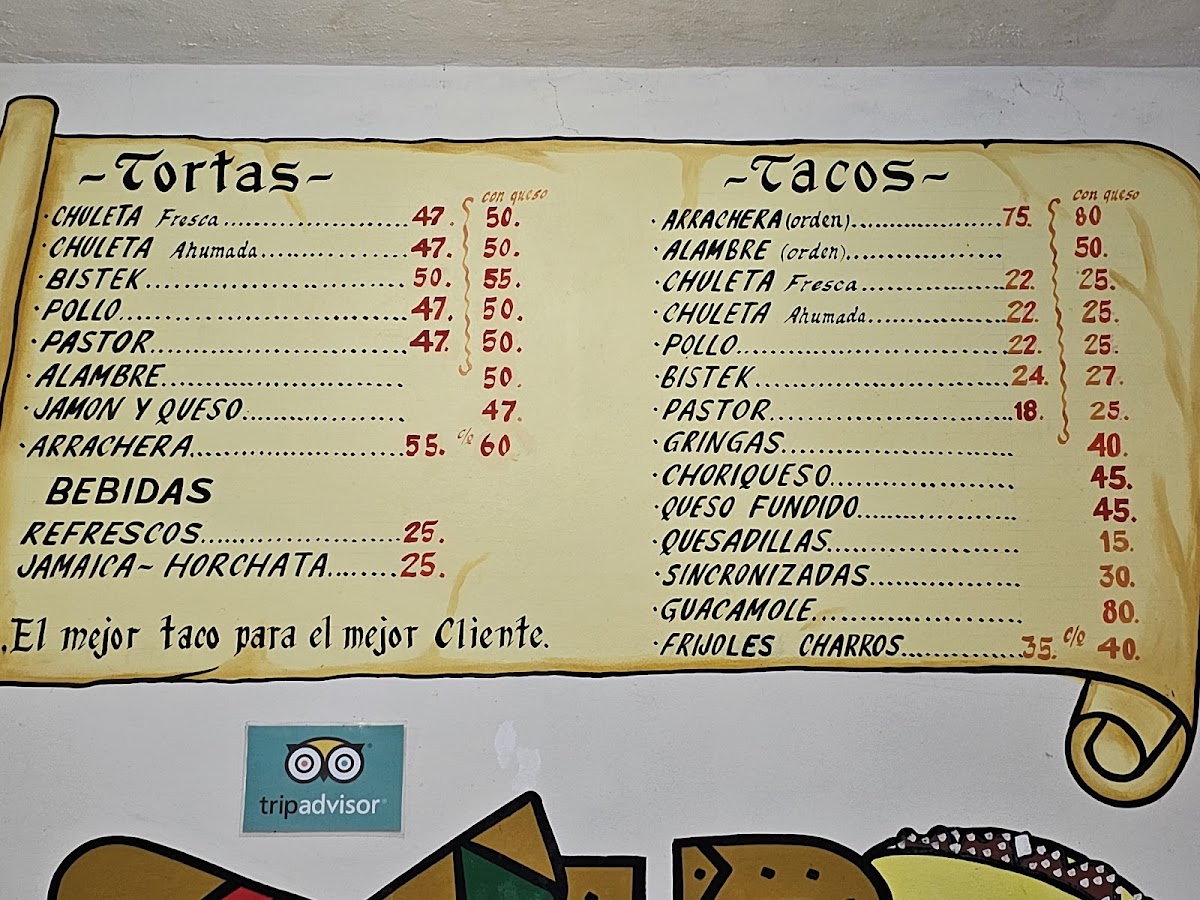 -Tortas-
con queso
·CHULETA Fresca........................47. 50.
·CHULETA Ahumada...................47. 50.
·BISTEK.................................50. 55.
·POLLO....................................47. 50.
·PASTOR................................47. 50.
·ALAMBRE............................... 50.
·JAMON Y QUESO..................... 47.
·ARRACHERA..........................55. c/q 60
BEBIDAS
REFRESCOS.........................25.
JAMAICA~HORCHATA........25.
.El mejor taco para el mejor Cliente.
-Tacos-
con queso
·ARRACHERA (orden).....................75. 80
·ALAMBRE (orden)..................... 50.
·CHULETA Fresca...................22. 25.
·CHULETA Ahumada..................22. 25.
·POLLO..................................22. 25.
·BISTEK................................24. 27.
·PASTOR..............................18. 25.
·GRINGAS............................ 40.
·CHORIQUESO....................... 45.
·QUESO FUNDIDO.................. 45.
·QUESADILLAS...................... 15.
·SINCRONIZADAS.................. 30.
·GUACAMOLE......................... 80.
·FRIJOLES CHARROS...............35. c/q 40.
tripadvisor®